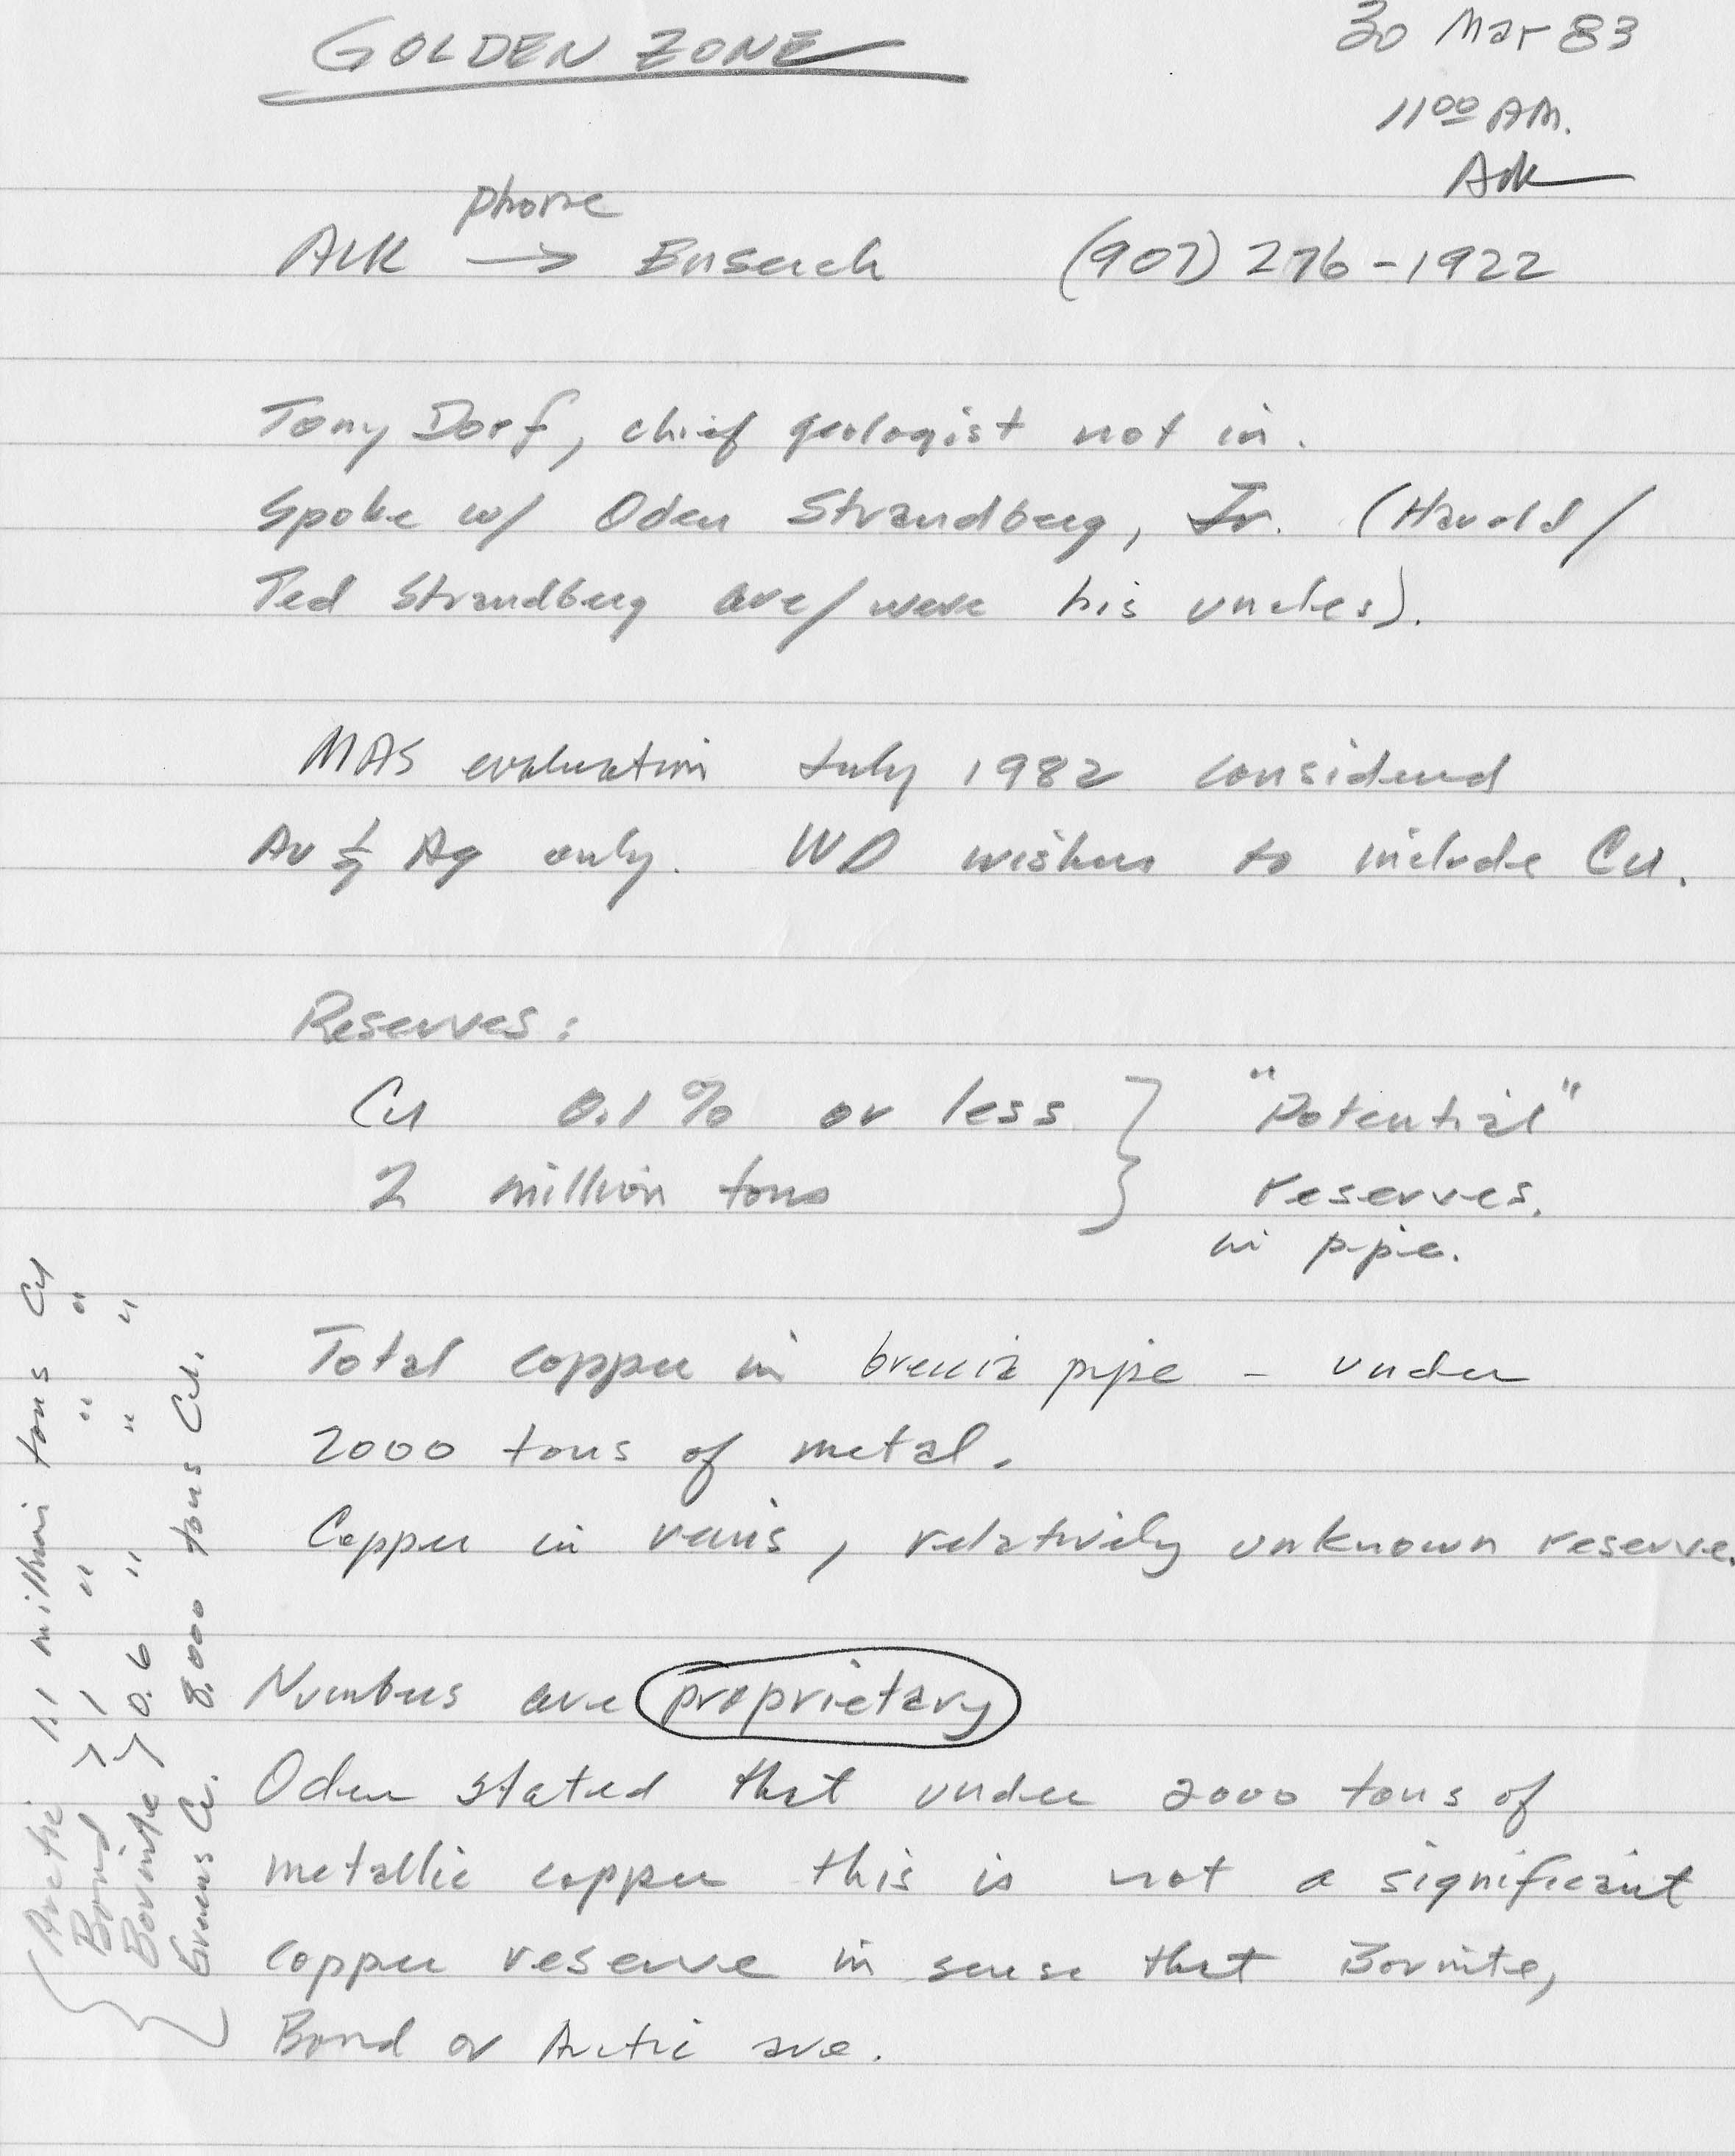 GOLDEN ZONE
30 Mar 83
11 00 AM.
phone
AUK → Enserch (907) 276-1922
Tony Dorf, chief geologist not in.
Spoke w/ Oden Strandberg, Jr. (Harold/
Ted Strandberg are/were his uncles).
MAS evaluation July 1982 considered
Au & Ag only. WD wishes to include Cu.
Reserves:
Cu 0.1% or less } "Potential"
2 million tons } reserves.
in pipe.
Total copper in breccia pipe - under
2000 tons of metal.
Copper in veins, relatively unknown reserve.
Numbers are proprietary
Oden stated that under 2000 tons of
metallic copper this is not a significant
copper reserve in sense that Bornite,
Bond or Arctic are.
Arctic 1.1 million tons Cu
Bond > 1 " " "
Bornite > 0.6 " " "
8,000 tons Cu.